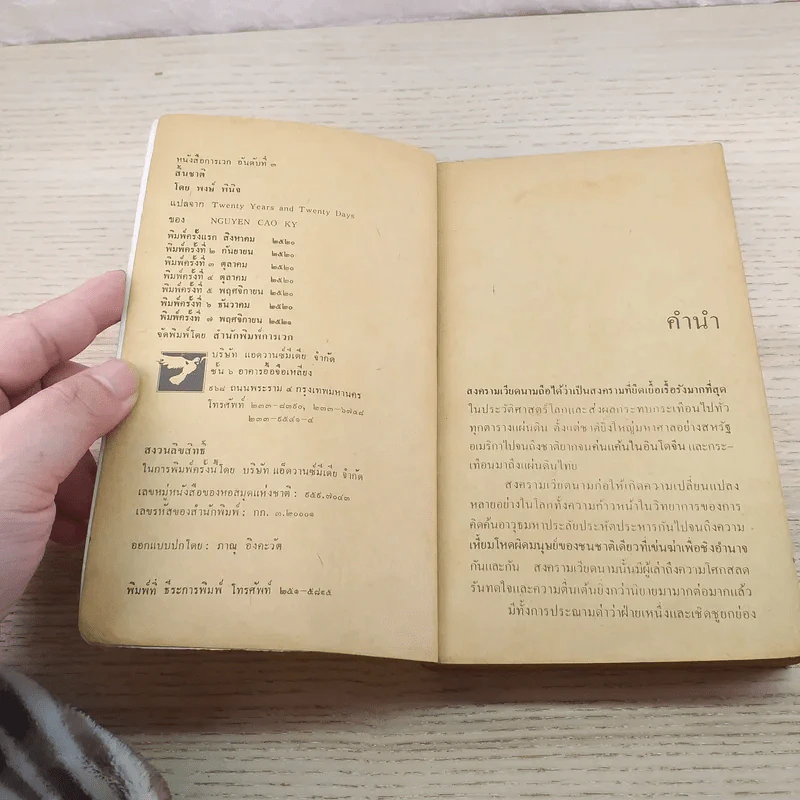 หนังสือการเวก อันดับที่ ๓
สิ้นชาติ
โดย พงษ์ พินิจ
แปลจาก Twenty Years and Twenty Days
ของ NGUYEN CAO KY
พิมพ์ครั้งแรก สิงหาคม ๒๕๒๐
พิมพ์ครั้งที่ ๒ กันยายน ๒๕๒๐
พิมพ์ครั้งที่ ๓ ตุลาคม ๒๕๒๐
พิมพ์ครั้งที่ ๔ ตุลาคม ๒๕๒๐
พิมพ์ครั้งที่ ๕ พฤศจิกายน ๒๕๒๐
พิมพ์ครั้งที่ ๖ ธันวาคม ๒๕๒๐
พิมพ์ครั้งที่ ๗ พฤศจิกายน ๒๕๒๑
จัดพิมพ์โดย สำนักพิมพ์การเวก
บริษัท แอดวานซ์มีเดีย จำกัด
ชั้น ๖ อาคารอื้อจือเหลียง
๙๖๘ ถนนพระราม ๔ กรุงเทพมหานคร
โทรศัพท์ ๒๓๓-๘๓๙๐, ๒๓๓-๖๗๕๘
๒๓๓-๙๕๔๑-๔
สงวนลิขสิทธิ์
ในการพิมพ์ครั้งนี้โดย บริษัท แอ็ดวานซ์มีเดีย จำกัด
เลขหมู่หนังสือของหอสมุดแห่งชาติ : ๙๕๙.๗๐๔๓
เลขรหัสของสำนักพิมพ์ : กก. ๓.๒๐๐๐๑
ออกแบบปกโดย : ภาณุ อิงคะวัต
พิมพ์ที่ ธีระการพิมพ์ โทรศัพท์ ๒๕๑-๕๘๑๕
คำนำ
สงครามเวียดนามถือได้ว่าเป็นสงครามที่ยืดเยื้อเรื้อรังมากที่สุด
ในประวัติศาสตร์โลกและ ส่งผลกระทบกระเทือนไปทั่ว
ทุกตารางแผ่นดิน ตั้งแต่ชาติยิ่งใหญ่มหาศาลอย่างสหรัฐ
อเมริกาไปจนถึงชาติยากจนค่นแค้นในอินโดจีน และกระ-
เทือนมาถึงแผ่นดินไทย
สงครามเวียดนามก่อให้เกิดความเปลี่ยนแปลง
หลายอย่างในโลกทั้งความก้าวหน้าในวิทยาการของการ
คิดค้นอาวุธมหาประลัยประหัตประหารกันไปจนถึงความ
เหี้ยมโหดผิดมนุษย์ของชนชาติเดียวที่เข่นฆ่าเพื่อชิงอำนาจ
กันและกัน สงครามเวียดนามนั้นมีผู้เล่าถึงความโศกสลด
รันทดใจและความตื่นเต้นยิ่งกว่านิยายมามากต่อมากแล้ว
มีทั้งการประณามด่าว่าฝ่ายเหนึ่งและเชิดชูยกย่อง